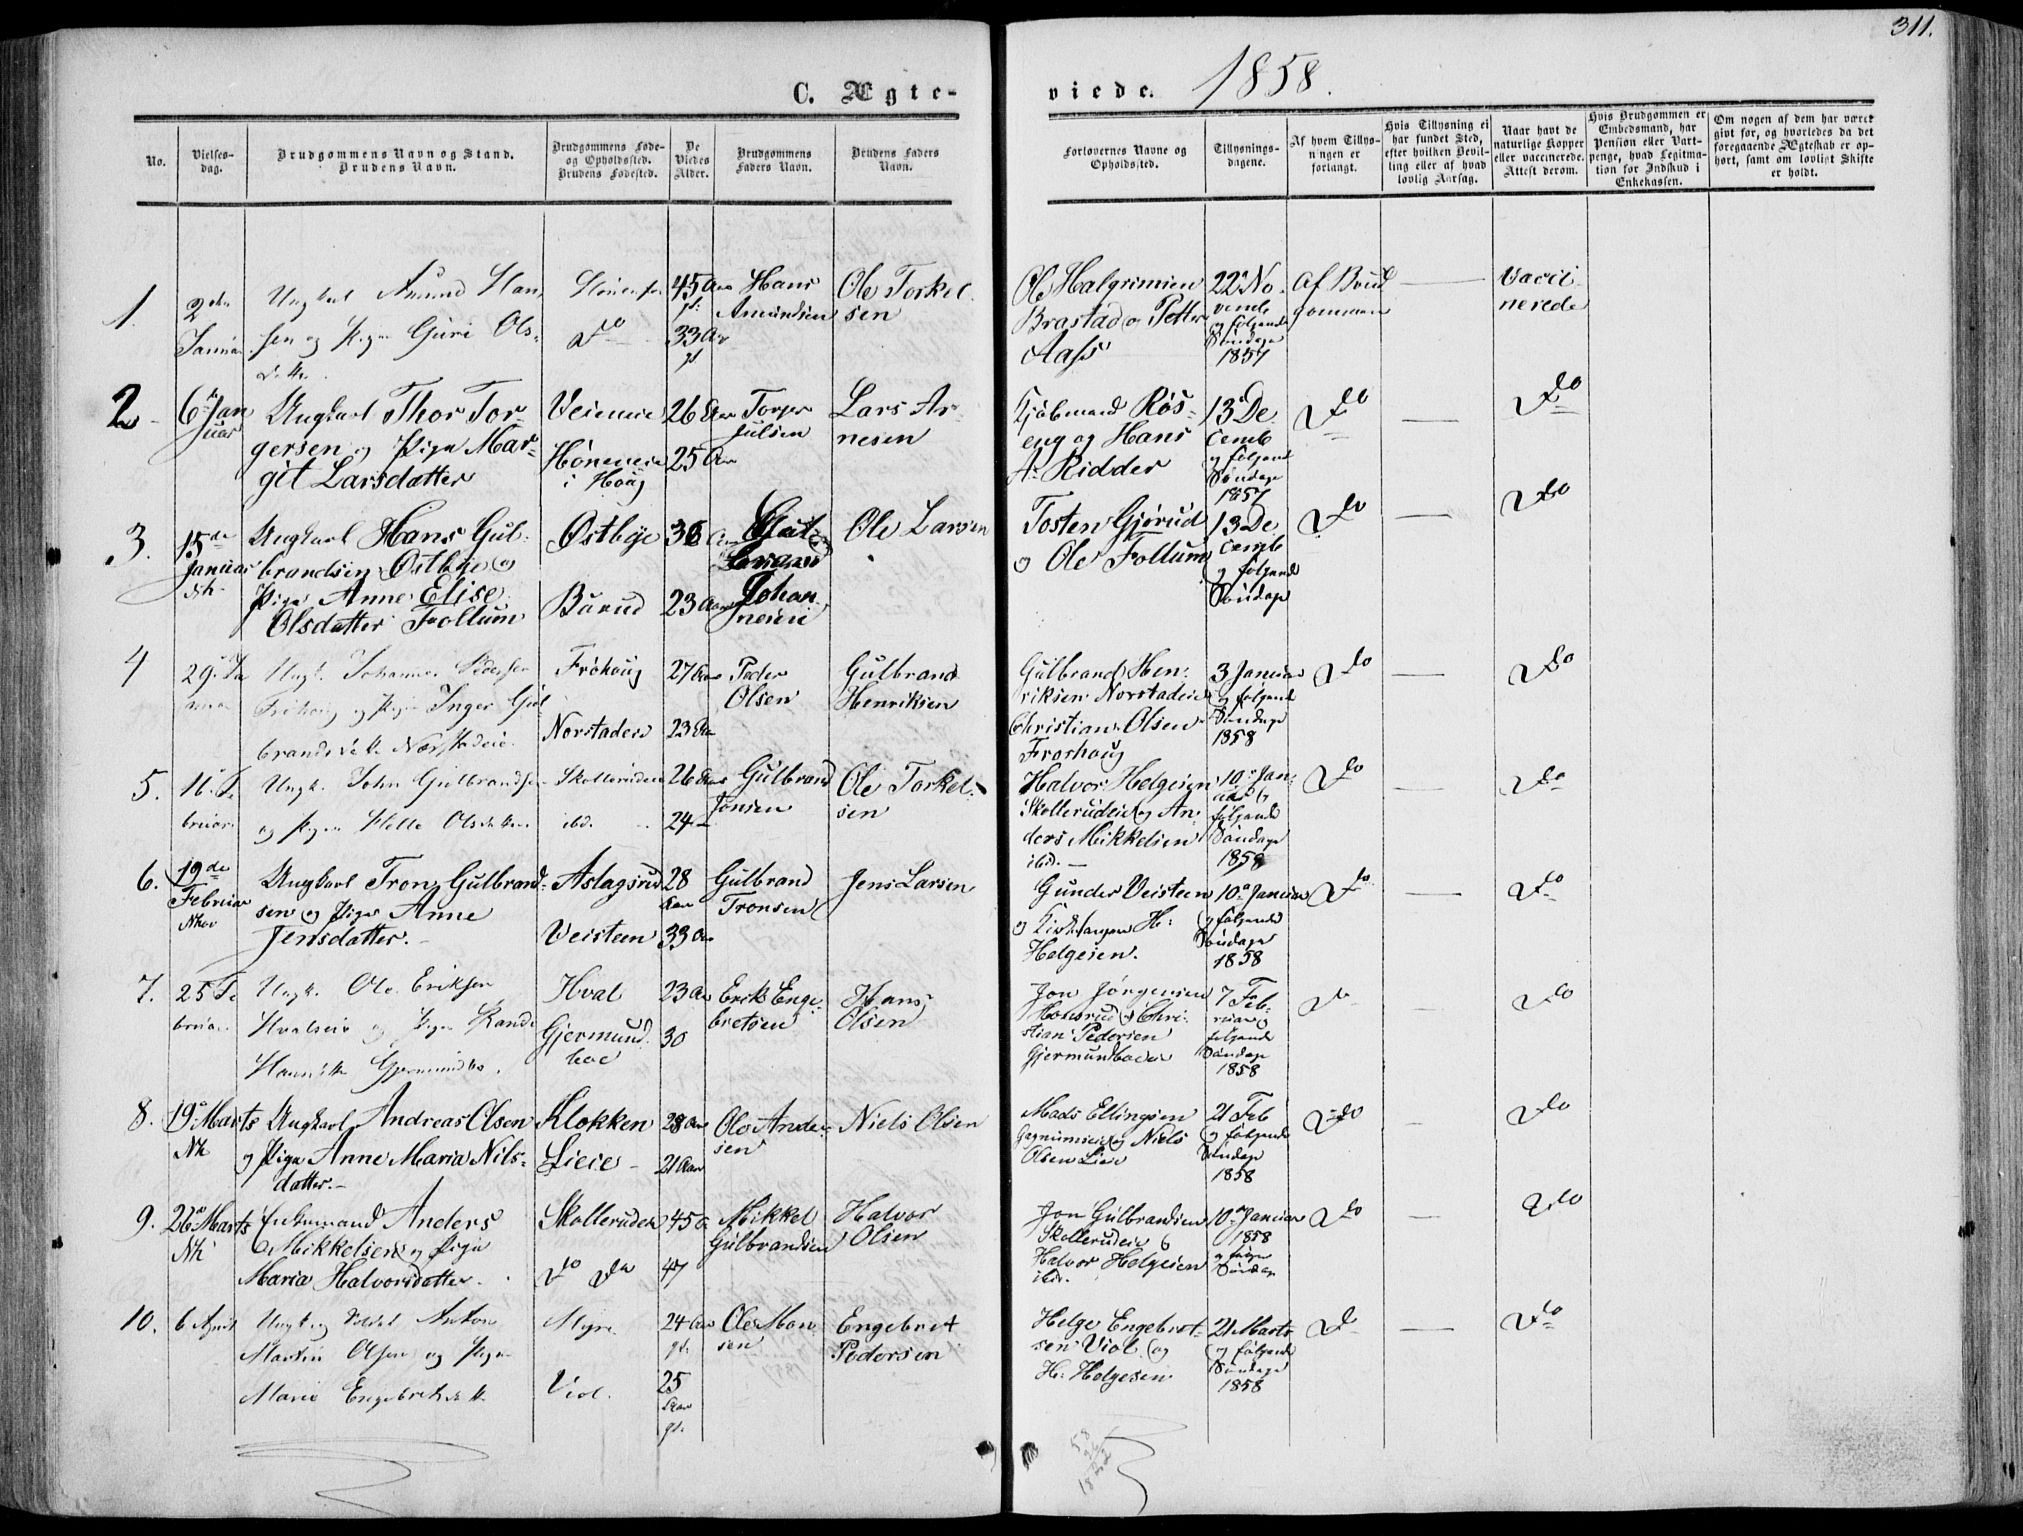 311.
C. Ægte-
viede. 1858.
No.
Vielses-
dag.
Brudgommens Navn og Stand.
Brudens Navn.
Brudgommens Føde-
og Opholdssted.
Brudens Fødested.
De
Viedes
Alder.
Brudgommens
Faders Navn.
Brudens Faders
Navn.
Forlovernes Navne og
Opholdssted.
Tillysnings-
dagene.
Af hvem Tillys-
ningen er
forlangt.
Hvis Tillysning ei
har fundet Sted,
efter hvilken Bevil-
ling eller af hvad
lovlig Aarsag.
Naar havt de
naturlige Kopper
eller vaccinerede.
Attest derom.
Hvis Brudgommen er
Embedsmand, har
Pension eller Vart-
penge, hvad Legitima-
tion for Indskud i
Enkekassen.
Om nogen af dem har været
givt før, og hvorledes da det
foregaaende Ægteskab er op-
hørt, samt om lovligt Skifte
er holdt.
1.
2den
Januar
Ungkarl Amund Han-
sen og Pigen Guri Ols-
dttr.
Do
45 Aar
gl.
33 Aar
gl
Hans
Amundsen
Ole Torkel-
sen
Ole Halgrimsen
Brastad og Petter
Aass
22 No-
vemb
og følgende
Søndage
1857
Af Brud
gommen
Vacci
nerede
2
6 Jan
juar
Ungkarl Thor Tor-
gersen og Pige Mar-
git Larsdatter
Veieneie
Høneneie
i Houg
26 Aar
25 Aar
Torger
Julsen
Lars Ar-
nesen
Røs-
eng og Hans
A. Ridder
13 De
cemb
og følgend
Søndage
1857
Do
Do
3.
15de
Januar
Nk
Ungkarl Hans Gul-
brandsen Østbye og
Pige Anne Elise
Olsdatter Follum
Østbye
Burud
36 Aar
23 Aar
Gul-
brand
Johan
nesen
Ole Larsen
Tosten Gjørud
og Ole Follum
13 De
cemb
og følgende
Søndage
Do
Do
4
29 Ja
nuar
Ungk. Johannes Pedersen
Frøhoug og Pigen Inger Gul
brandsdatt. Norstadeie
Frøhoug
Norstadeie
27 Aar
23 Aar
Peder
Olsen
Gulbrand
Henriksen
Gulbrand Hen-
riksen Norstadeie
Christian Olsen
Froshoug
3 Januar
og følgende
Søndage
1858
Do
Do
5.
11. Fe
bruar
Ungk. John Gulbrandsen
og Pigen Helle Olsdatter
Skollerudeie
ibd.
26 Aar
24
Gulbrand
Jonsen
Ole Torkel-
sen
Halvor Helgesen
Skollerudeie og An-
ders Mikkelsen
ibd.
10 Jan-
uar og
følgende
Søndage
1858
Do
Do
6.
19de
Februar
Ungkarl Tron Gulbrand-
sen og Pige Anne
Jensdatter.
Aslagsrud
Veisteen
28
Aar
33 Aar
Gulbrand
Tronsen
Jens Larsen
Gunder Veisteen
og H.
Helgesen.
10 Januar
og følgende
Søndage
1858
Do
Do
7.
25 Fe
bruar
Ungk. Ole Eriksen
Hvalseie og Pigen Randi
Hansdtr Gjermundbo.
Hval
Gjermund
boe
23 Aar
30
Erik Enge-
bretsen
Hans
Olsen
Jon Jørgensen
Honsrud og Chri-
stian Pedersen
Gjermundboeie
7 Feb-
ruar og
følgende
Søndage
1858
Do
Do
8.
19 Marts
Nk
Ungkarl Andreas Olsen
og Pige Anne Maria Nils-
datter.
Klokken
Lieie
28 Aar
21 Aar
Ole Ander-
sen
Niels Olsen
Mads Ellingsen
og Niels
Olsen Lieie
21 Feb
og følgende
Søndage
1858
Do
Do
9.
26 Marts
Nk
Enkemand Anders
Mikkelsen og Pige
Maria Halvorsdatter.
Skollerudeie
Do Do
45 A
47
Mikkel
Gulbrandsen
Halvor
Olsen
Jon Gulbrandsen
Skollerudeie og
Halvor Helgesen
ibd.
10 Januar
1858
og følgen
Søndage
Do
Do
10.
6 April
Ungk og Soldat Anton
Martin Olsen og Pigen
Marie Engebretsdatt
Myre
Viol.
24 Aar
gl.
25
Aar
gl.
Ole Mon-
sen
Engebret
Pedersen
Helge Engebret-
sen Viol og
H. Helgesen
21 Marts
og følgende
Søndage
1858
Do
Do
58
26
1832